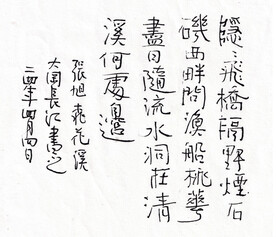 隱〻飛橋隔野煙石
磯西畔問漁船桃華
盡日隨流水洞在清
溪何處邊
張旭桃花溪
長江書之
二〇年四月四日